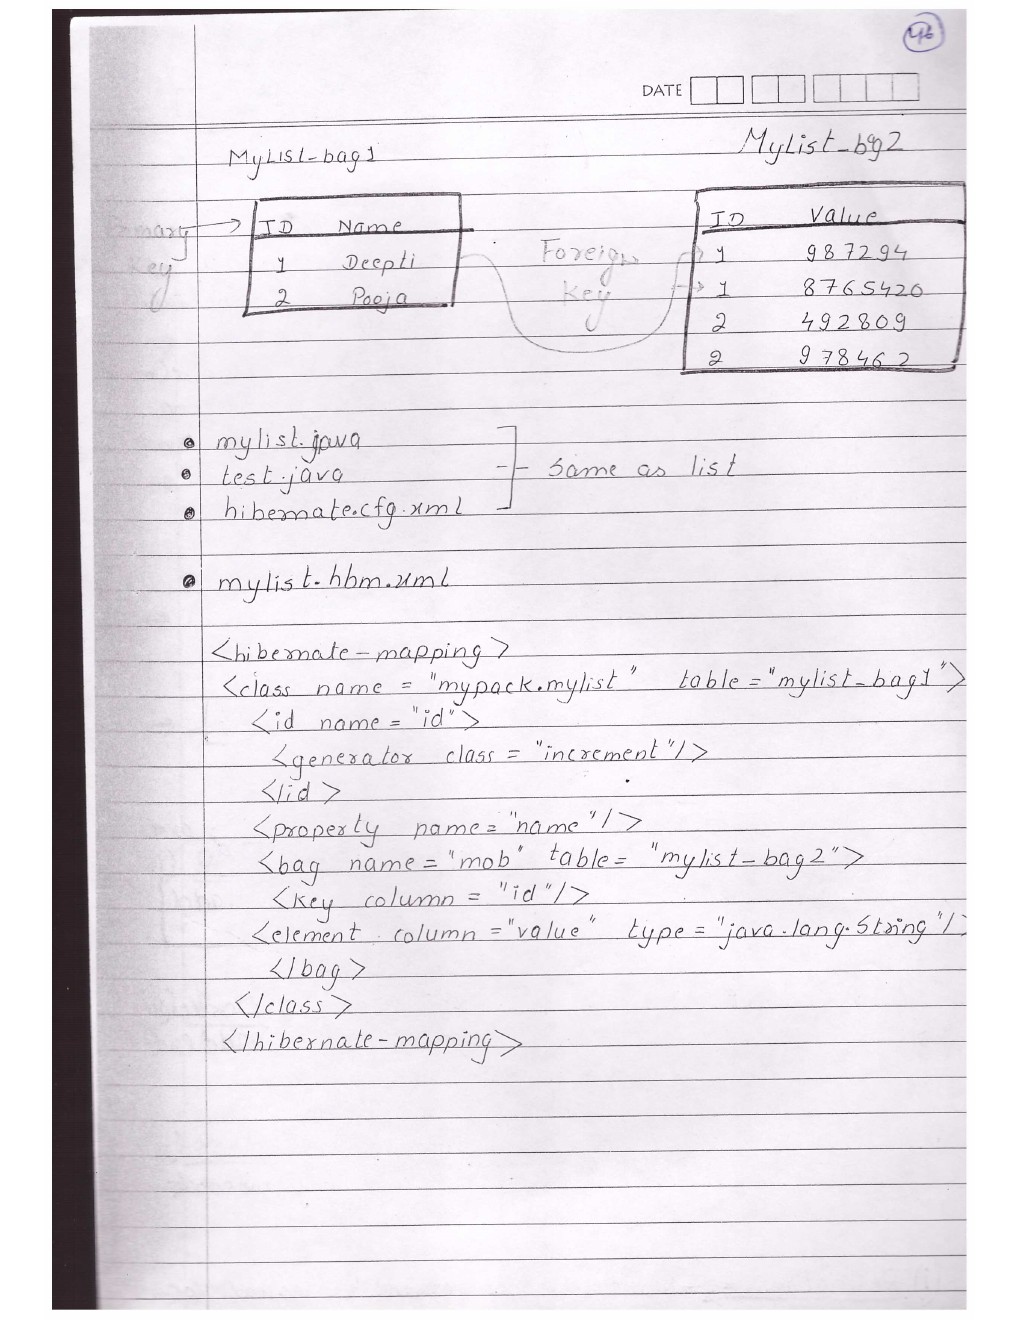 46
DATE
MyList-bag1 MyList-bag2
Primary Key
ID Name
1 Deepti
2 Pooja
Foreign Key
ID Value
1 987294
1 8765420
2 492809
2 978462
mylist.java
test.java
hibernate.cfg.xml
same as list
mylist.hbm.xml
<hibernate-mapping>
<class name = "mypack.mylist" table = "mylist-bag1">
<id name = "id">
<generator class = "increment"/>
</id>
<property name = "name"/>
<bag name = "mob" table = "mylist-bag2">
<key column = "id"/>
<element column = "value" type = "java.lang.String"/>
</bag>
</class>
</hibernate-mapping>